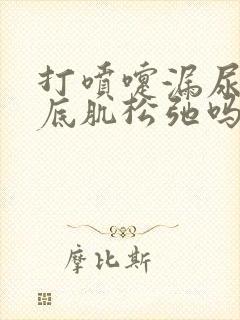 打喷嚏漏尿
底肌松弛吗
摩比斯